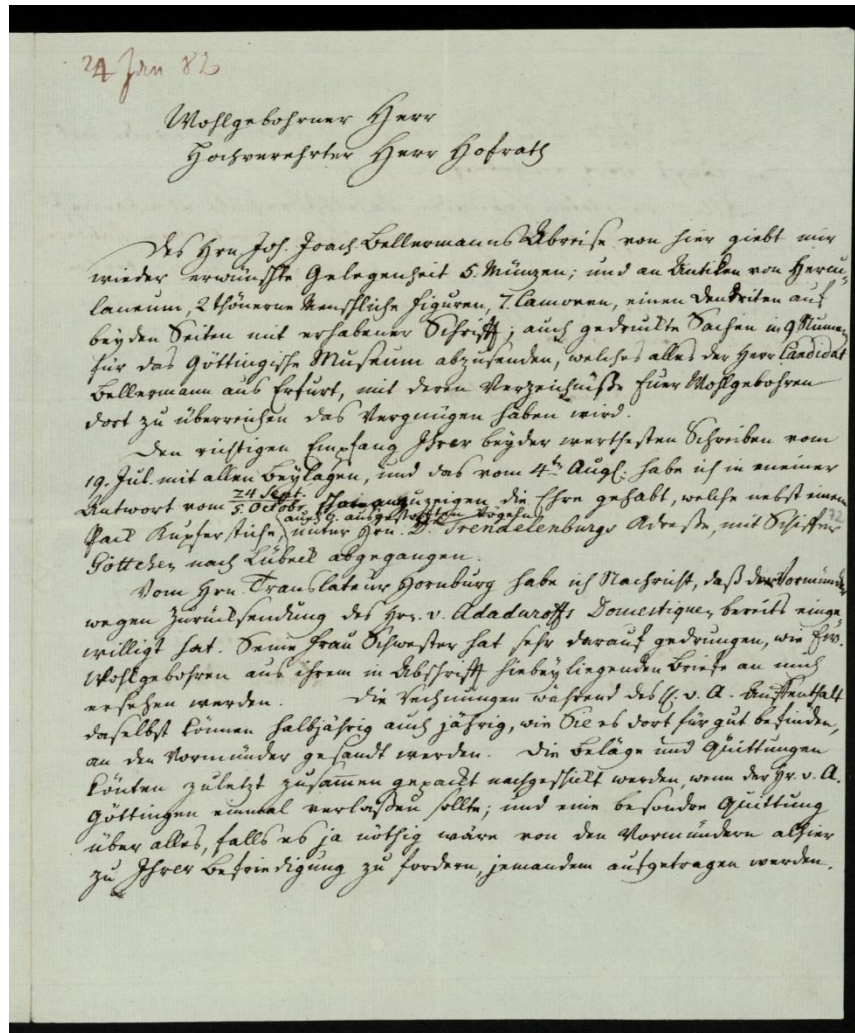 24 Jan 82
Wohlgebohrner Herr
Hochverehrter Herr Hofrath
Des Hrn Joh. Joach. Bellermanns Abreise von hier giebt mir
wieder erwünschte Gelegenheit 5. Münzen; und an Antiken von Hercu-
laneum, 2 thönerne Menschliche Figuren, 7. Camoeen, einen Dendriten auf
beyden Seiten mit erhabener Schrifft; auch gedruckte Sachen in 9 Numern
für das Göttingische Museum abzusenden, welches alles der Herr Candidat
Bellermann aus Erfurt, mit deren Verzeichnüsse Euer Wohlgebohren
dort zu überreichen das Vergnügen haben wird.
Den richtigen Empfang Ihrer beyder werthesten Schreiben vom
19. Jul. mit allen Beylagen, und das vom 4ten Augl. habe ich in meiner
Antwort vom 24 Sept. / 5. Octobr. anzuzeigen die Ehre gehabt, welche nebst einem
(auch 9. ausgestopften Vögeln)
Pack Kupferstiche, unter Hrn. D. Trendelenburgs Adresse, mit Schiffer
72
Göttchen nach Lübeck abgegangen.
Vom Hrn. Translateur Hornburg habe ich Nachricht, daß der Vormünder
wegen Zurücksendung des Hrn. v. Adaduroffs Domestiquen bereits einge-
willigt hat. Seine Frau Schwester hat sehr darauf gedrungen, wie Ew.
Wohlgebohren aus ihrem in Abschrifft hiebey liegenden Briefe an mich
ersehen werden. Die Rechnungen während des H. v. A. Auffenthalt
daselbst können halbjährig auch jährig, wie Sie es dort für gut befinden,
an den Vormünder gesandt werden. Die Beläge und Quittungen
könten zuletzt zusammen gepackt nachgeschickt werden, wenn der Hr. v. A.
Göttingen einmal verlassen sollte; und eine besondre Quittung
über alles, falls es ja nöthig wäre von den Vormündern alhier
zu Ihrer Befriedigung zu fordern, jemandem aufgetragen werden.